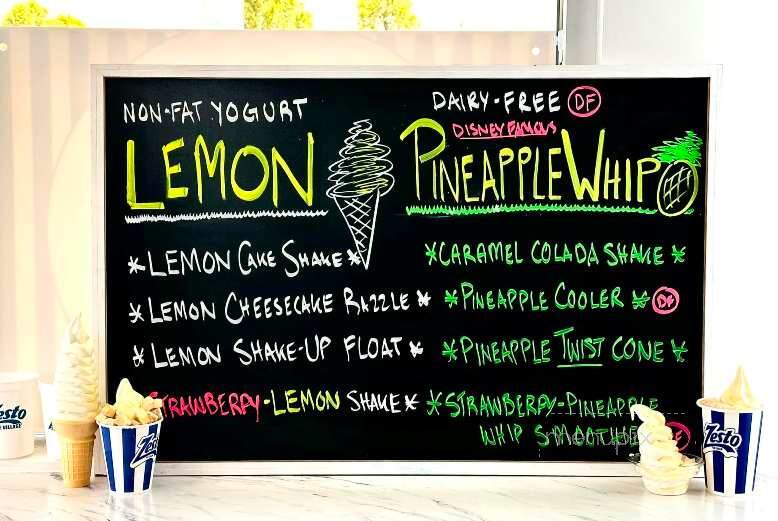 NON-FAT YOGURT
LEMON
*LEMON CAKE SHAKE*
*LEMON CHEESECAKE RAZZLE*
*LEMON SHAKE-UP FLOAT*
STRAWBERRY-LEMON SHAKE*
DAIRY-FREE DF
DISNEY FAMOUS
PINEAPPLE WHIP
*CARAMEL COLADA SHAKE*
*PINEAPPLE COOLER* DF
*PINEAPPLE TWIST CONE*
*STRAWBERRY-PINEAPPLE
WHIP SMOOTHIE
Zesto
VILLAGE
Zesto
Zesto